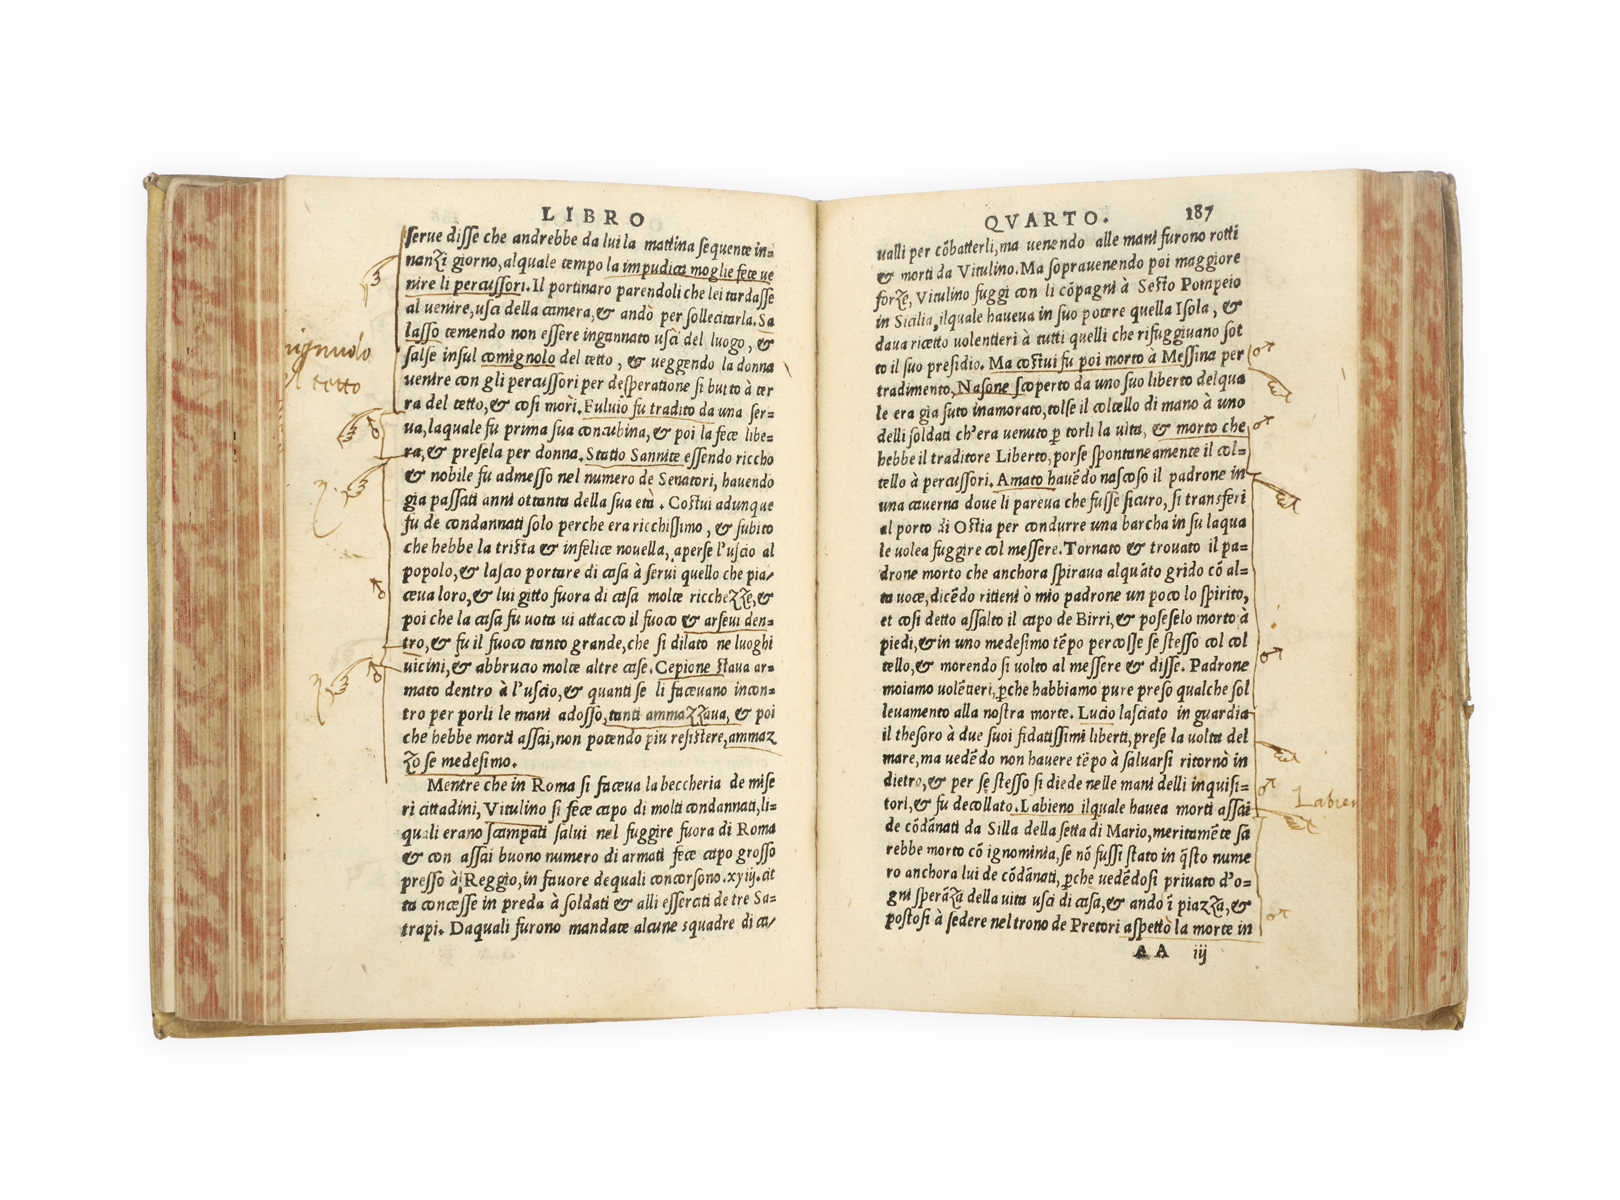 LIBRO
serue disse che andrebbe da lui la mattina sequente in=
nanzi giorno, al quale tempo la impudica moglie fece ue
nire li percussori. Il portinaro parendoli che lei tardasse
al uenire, usci della camera, & andò per sollecitarla. Sa
lasso temendo non essere ingannato usci del luogo, &
salse insul comignolo del tetto, & ueggendo la donna
uenire con gli percussori per desperatione si butto à ter
ra del tetto, & cosi morì. Fuluio fu tradito da una ser=
ua, laquale fu prima sua concubina, & poi la fece libe=
ra, & presela per donna. Statio Sannite essendo riccho
& nobile fu admesso nel numero de Senatori, hauendo
gia passati anni ottanta della sua età. Costui adunque
fu de condannati solo perche era ricchissimo, & subito
che hebbe la trista & infelice nouella, aperse l'uscio al
popolo, & lascio portare di casa à serui quello che pia/
ceua loro, & lui gitto fuora di casa molte ricchezze, &
poi che la casa fu uota ui attacco il fuoco & arseui den=
tro, & fu il fuoco tanto grande, che si dilato ne luoghi
uicini, & abbrucio molte altre case. Cepione staua ar=
mato dentro à l'uscio, & quanti se li faceuano incon=
tro per porli le mani adosso, tanti ammazzaua, & poi
che hebbe morti assai, non potendo piu resistere, ammaz
zo se medesimo.
Mentre che in Roma si faceua la beccheria de mise
ri cittadini, Vitulino si fece capo di molti condannati, li=
quali erano scampati salui nel fuggire fuora di Roma
& con assai buono numero di armati fece capo grosso
presso à Reggio, in fauore dequali concorsono. xyiij. cit
ta concesse in preda à soldati & alli esserciti de tre Sa=
trapi. Daquali furono mandate alcune squadre di ca/
tetto
QVARTO. 187
ualli per cōbatterli, ma uenendo alle mani furono rotti
& morti da Vitulino. Ma soprauenendo poi maggiore
forze, Vitulino fuggi con li cōpagni à Sesto Pompeio
in Sicilia, ilquale haueua in suo potere quella Isola, &
daua ricetto uolentieri à tutti quelli che rifuggiuano sot
to il suo presidio. Ma costui fu poi morto à Messina per
tradimento, Nasone scoperto da uno suo liberto del qua
le era gia suto inamorato, tolse il coltello di mano à uno
delli soldati ch'era uenuto ꝑ torli la uita, & morto che
hebbe il traditore Liberto, porse spontaneamente il col=
tello à percussori. Amato hauēdo nascoso il padrone in
una cauerna doue li pareua che fusse sicuro, si transferi
al porto di Ostia per condurre una barcha in su laqua
le uolea fuggire col messere. Tornato & trouato il pa=
drone morto che anchora spiraua alquāto grido cō al=
ta uoce, dicēdo ritieni ò mio padrone un poco lo spirito,
et cosi detto assalto il capo de Birri, & poseselo morto à
piedi, & in uno medesimo tēpo percosse se stesso col col
tello, & morendo si uolto al messere & disse. Padrone
moiamo uolētieri, ꝑche habbiamo pure preso qualche sol
leuamento alla nostra morte. Lucio lasciato in guardia
il thesoro à due suoi fidatissimi liberti, prese la uolta del
mare, ma uedēdo non hauere tēpo à saluarsi ritornò in
dietro, & per se stesso si diede nelle mani delli inquisi=
tori, & fu decollato. Labieno ilquale hauea morti assai
de cōdānati da Silla della setta di Mario, meritamēte sa
rebbe morto cō ignominia, se nō fussi stato in q̄sto nume
ro anchora lui de cōdānati, ꝑche uedēdosi priuato d'o=
gni sperāza della uita usci di casa, & ando ī piazza, &
postosi à sedere nel trono de Pretori aspettò la morte in
AA iij
Labien